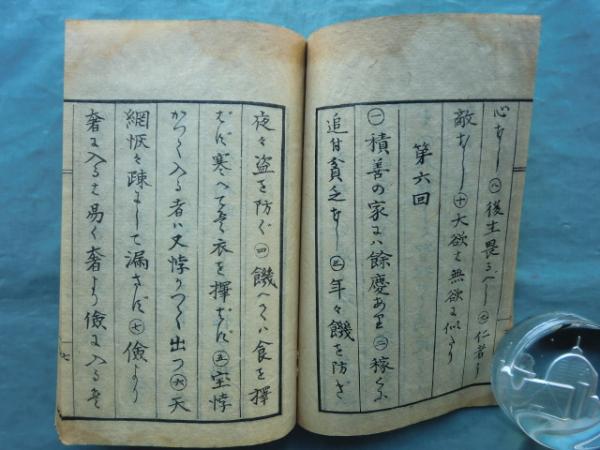 心なし㊇後生畏るべし㊈仁者に
敵なし㊉大欲は無欲に似たり
第六回
㊀積善の家には餘慶あり㊁稼ぐに
追付貧乏なし㊂年々饑を防ぎ
夜々盗を防ぐ㊃饑へては食を擇
ばず寒へては衣を擇ばず㊄宝悖
かつて入る者は又悖りつて出つ㊅天
網恢々疎にして漏さず㊆儉より
奢に入るは易く奢より儉に入るは